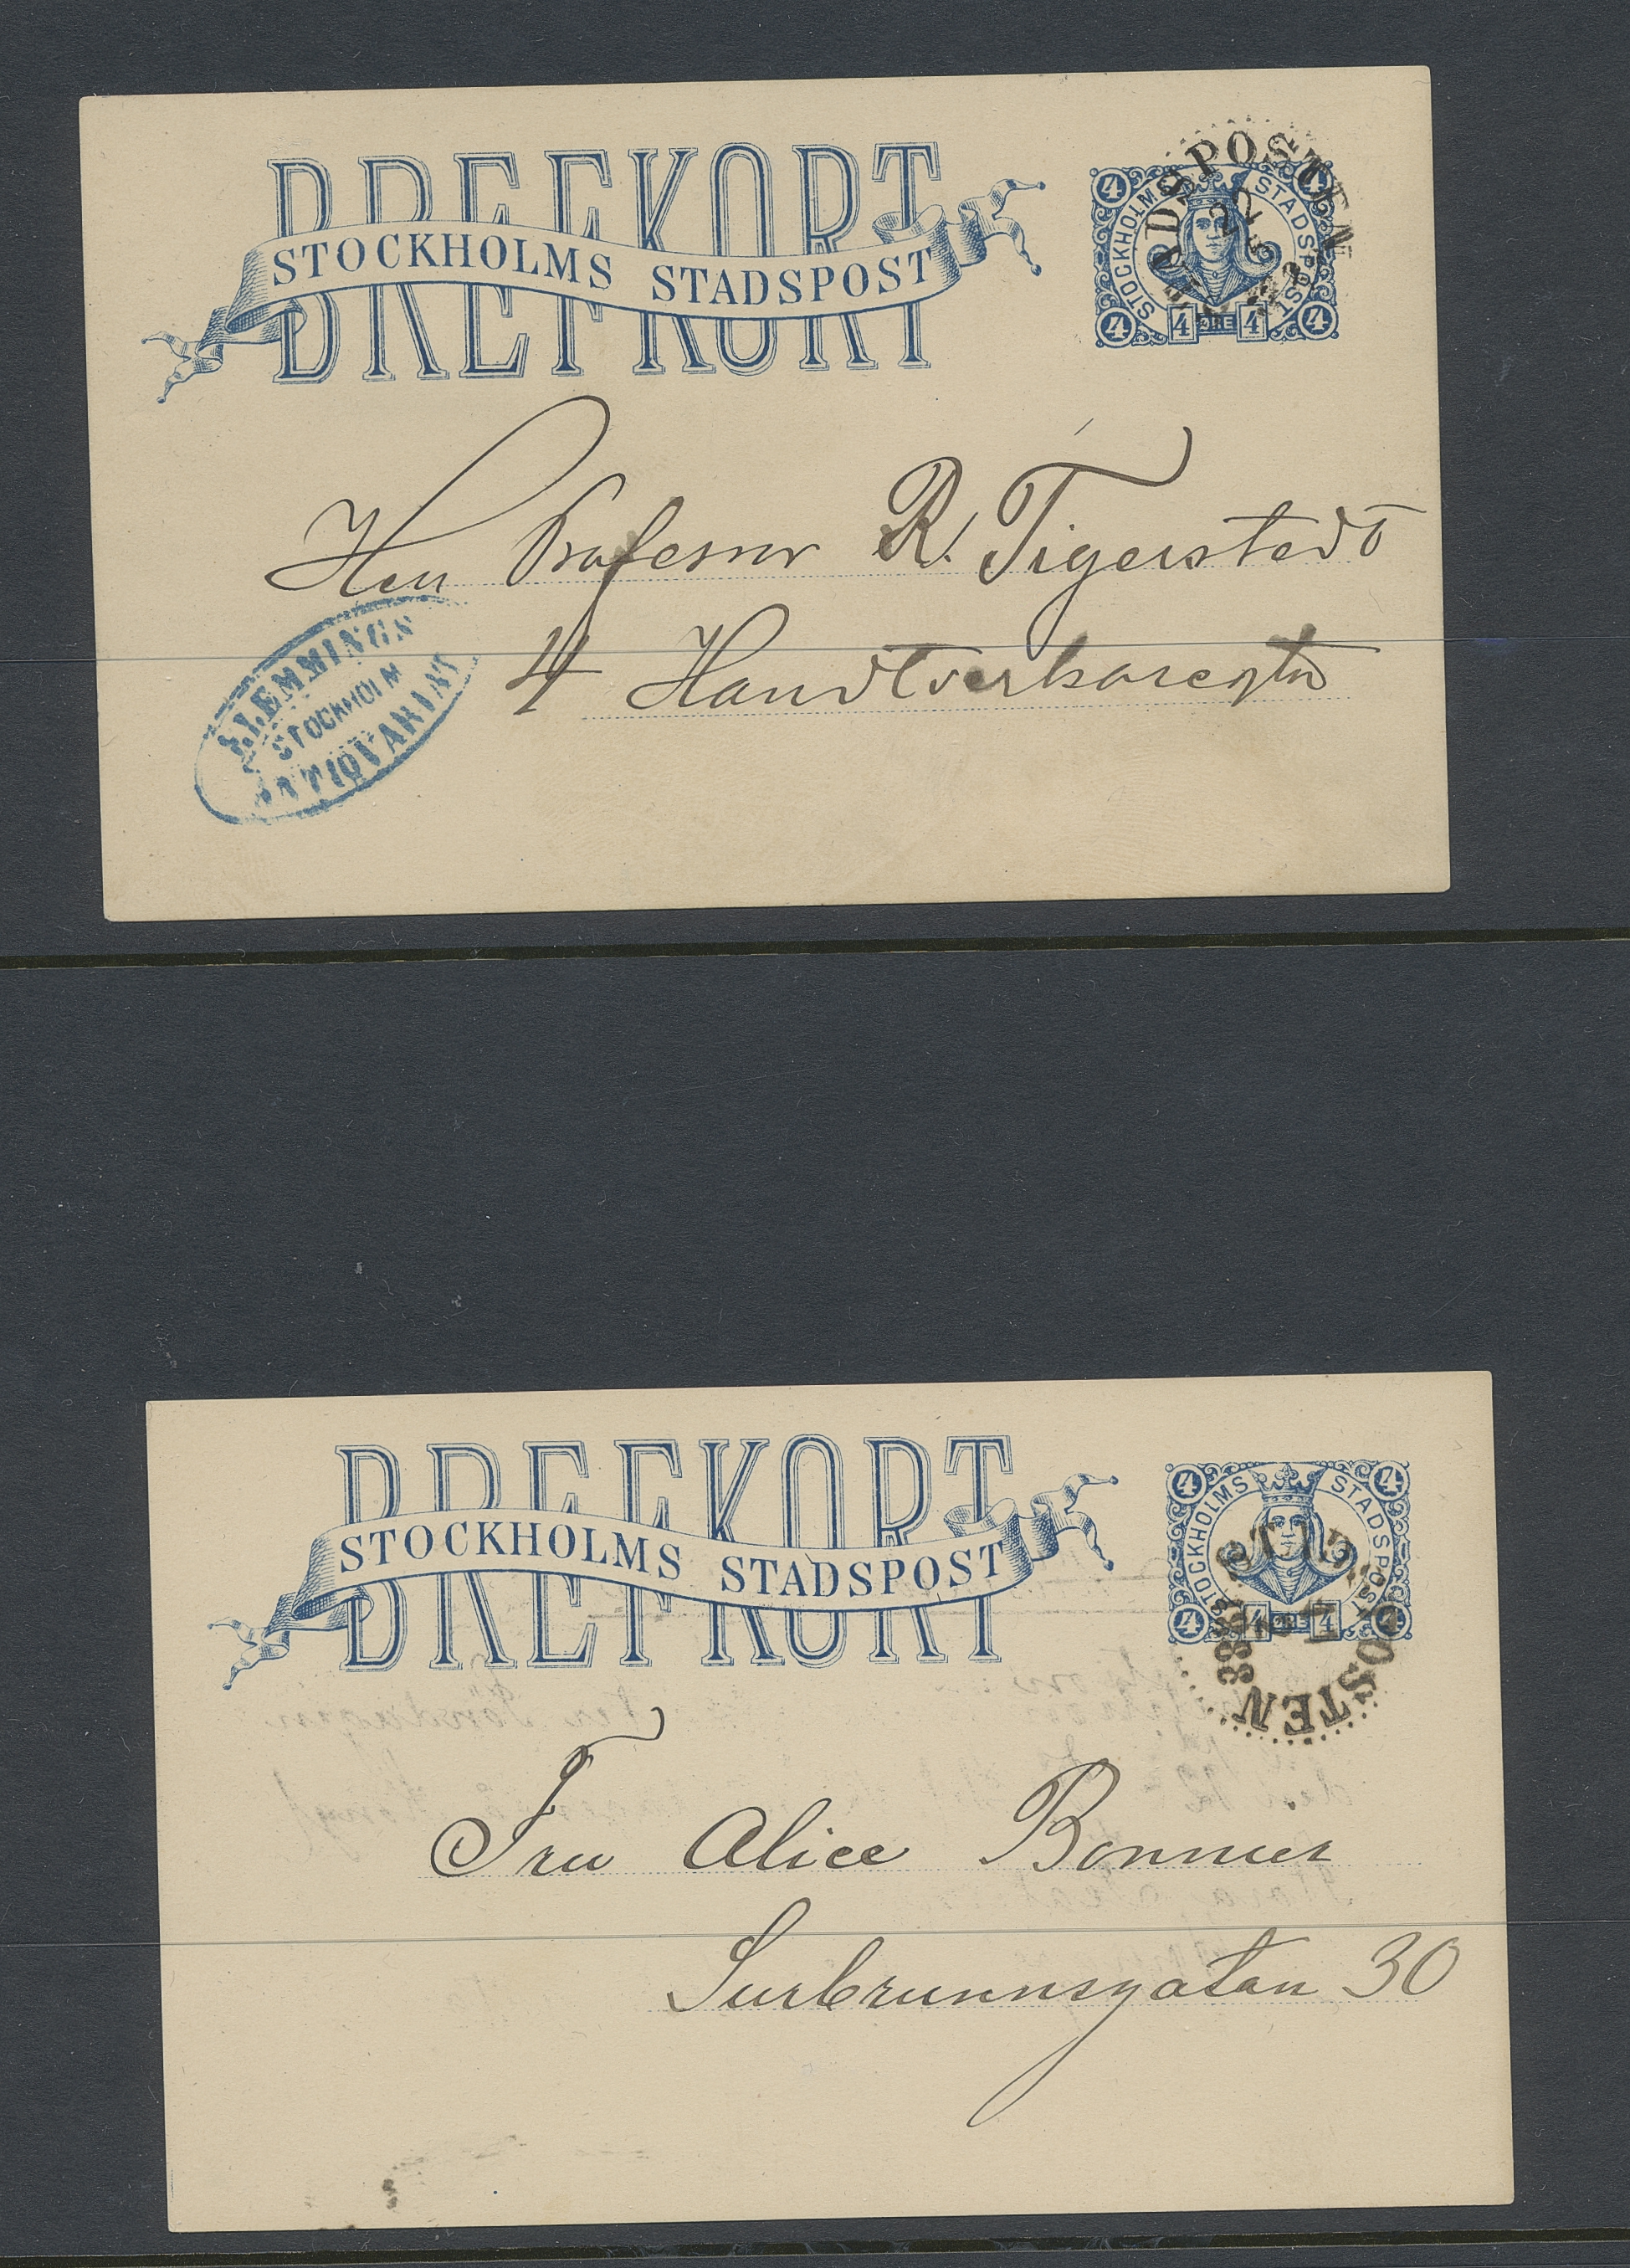 BREFKORT
STOCKHOLMS STADSPOST
STOCKHOLMS STADSPOST
4 4
4 4 ÖRE 4 4
DSPOSTEN
22
Herr Professor R. Tigerstedt
4 Handtverkaregtn
KLEMMINGS
STOCKHOLM
ANTIQVARIAT
BREFKORT
STOCKHOLMS STADSPOST
STOCKHOLMS STADSPOST
4 4
4 4 ÖRE 4 4
OSTEN
Fru Alice Bonnier
Surbrunnsgatan 30